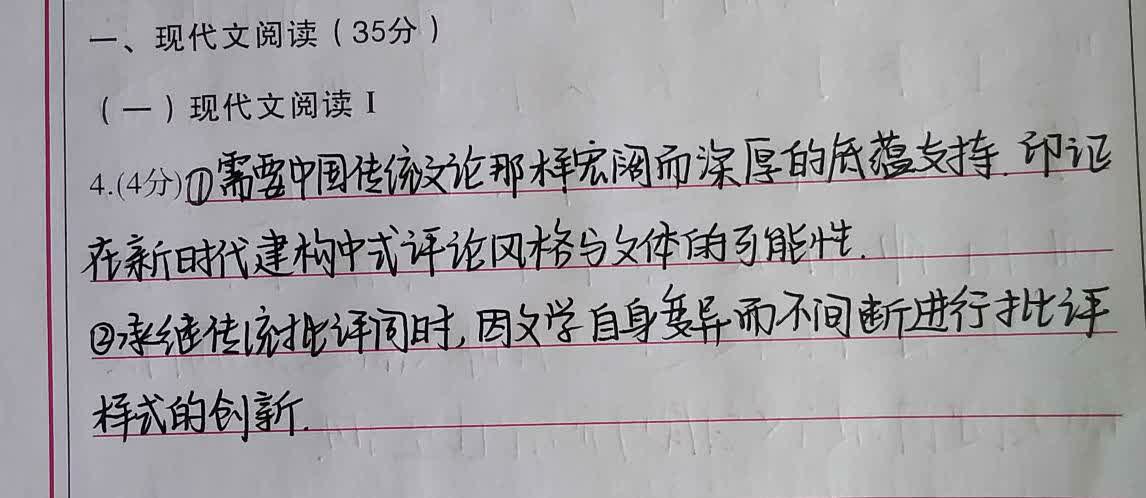 一、现代文阅读（35分）
（一）现代文阅读Ⅰ
4.(4分)①需要中国传统文论那样宏阔而深厚的底蕴支持.印证
在新时代建构中式评论风格与文体的可能性.
②承继传统批评同时,因文学自身变异而不间断进行批评
样式的创新.